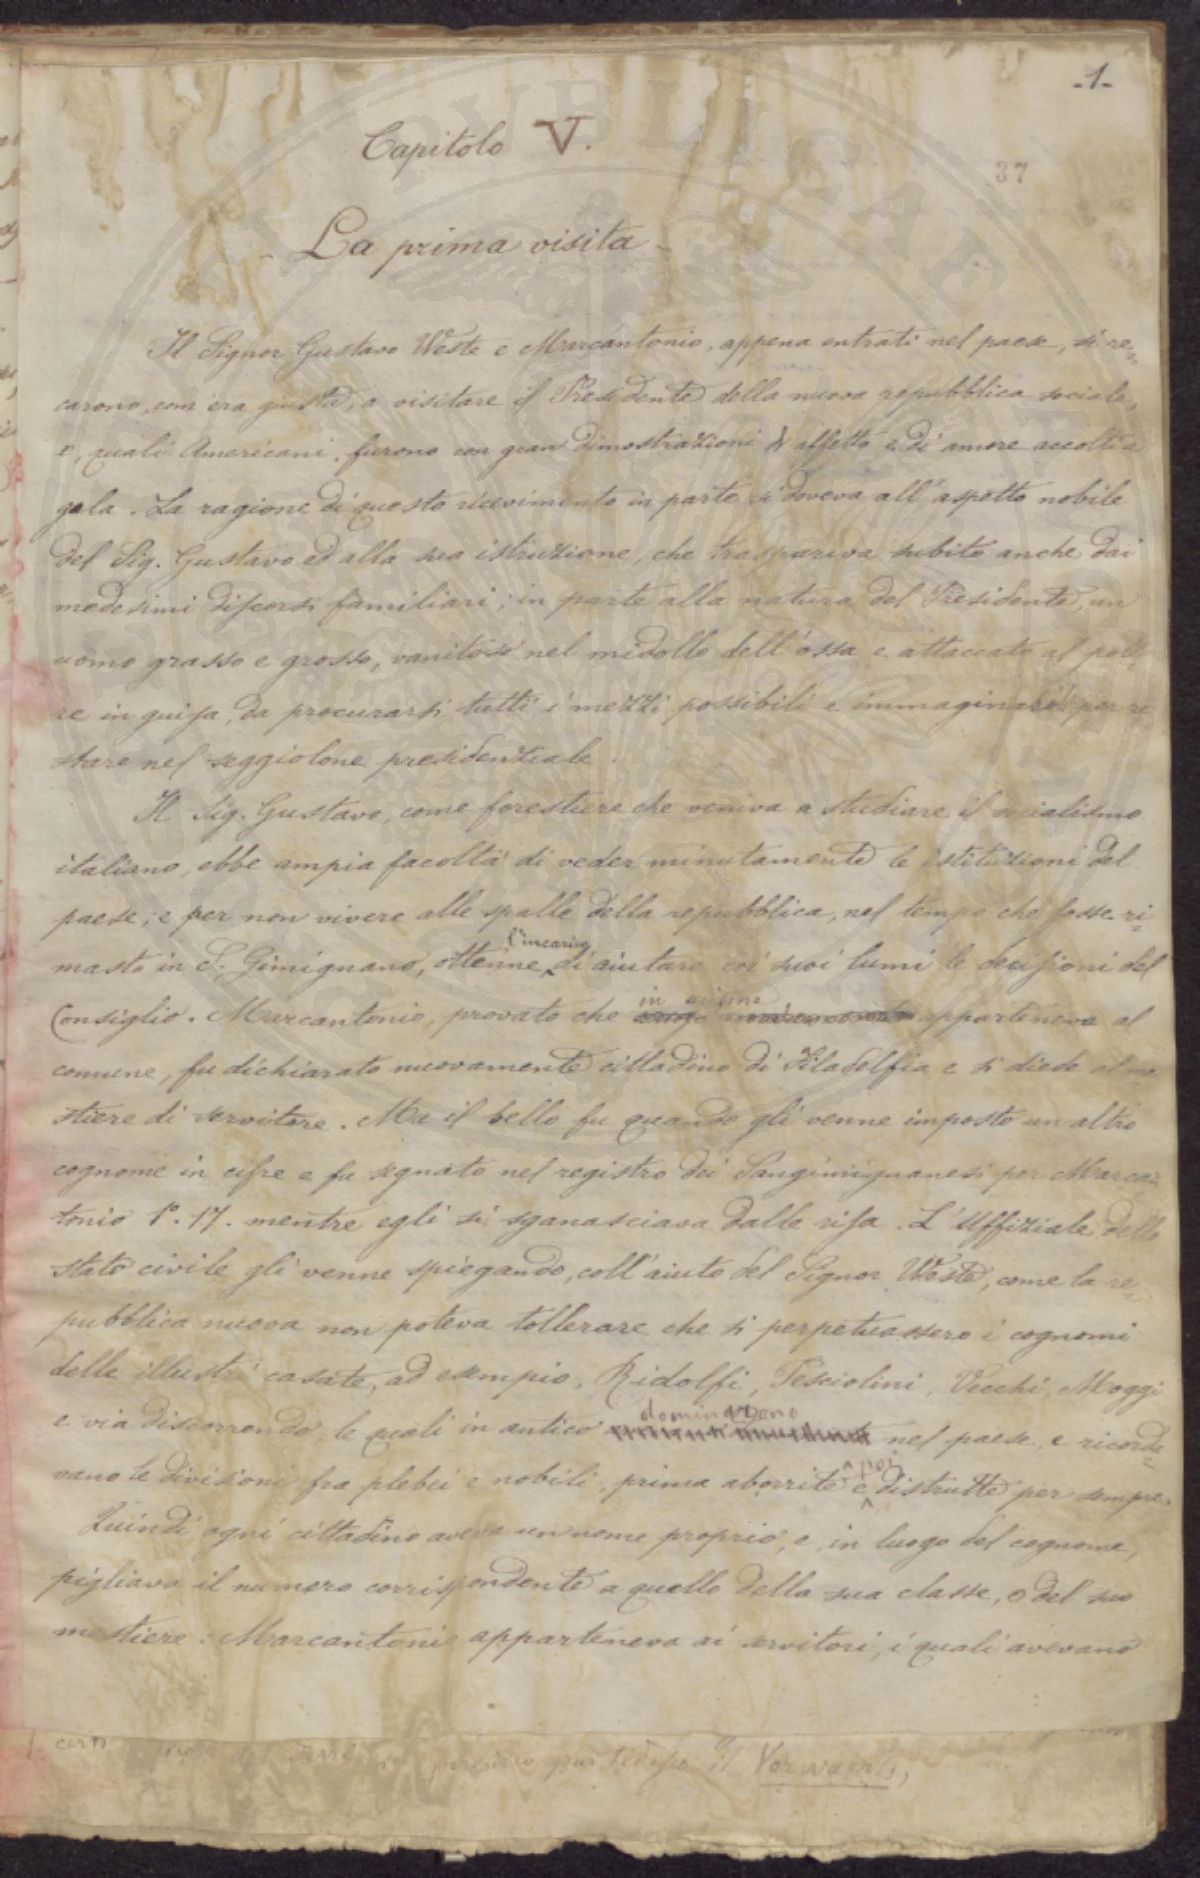 -1-
Capitolo V.
37
- La prima visita -
Il Signor Gustavo Weste e Marcantonio, appena entrati nel paese, si re=
carono, com'era giusto, a visitare il Presidente della nuova repubblica sociale,
e, quali Americani, furono con gran dimostrazioni di affetto e di amore accolti a
gala. La ragione di questo ricevimento in parte si doveva all'aspetto nobile
del Sig. Gustavo ed alla sua istruzione, che traspariva subito anche dai
medesimi discorsi familiari; in parte alla natura del Presidente, un
uomo grasso e grosso, vanitoso nel midollo dell'ossa e attaccato al pote=
re in guisa, da procurarsi tutti i mezzi possibili e immaginabili per re
stare nel seggiolone presidenziale.
Il Sig. Gustavo, come forestiere che veniva a studiare il socialismo
italiano, ebbe ampia facoltà di veder minutamente le istituzioni del
paese; e per non vivere alle spalle della repubblica, nel tempo che fosse ri=
masto in S. Gimignano, ottenne l'incarico di aiutare coi suoi lumi le decisioni del
Consiglio. Marcantonio, provato che in origine apparteneva al
comune, fu dichiarato nuovamente cittadino di Filadelfia e si diede al me
stiere di servitore. Ma il bello fu quando gli venne imposto un altro
cognome in cifre e fu segnato nel registro dei Sangimignanesi per Marcan=
tonio P. 17. mentre egli si sganasciava dalle risa. L'Uffiziale dello
stato civile gli venne spiegando, coll'aiuto del Signor Weste, come la re=
pubblica nuova non poteva tollerare che si perpetuassero i cognomi
delle illustri casate, ad esempio, Ridolfi, Pesciolini, Vecchi, Moggi
e via discorrendo le quali in antico dominavano nel paese, e ricorda=
vano le divisioni fra plebei e nobili, prima aborrite e poi distrutte per sempre.
Quindi ogni cittadino aveva un nome proprio, e, in luogo del cognome,
pigliava il numero corrispondente a quello della sua classe, o del suo
mestiere: Marcantonio apparteneva ai servitori, i quali avevano
il Vorwaerts,